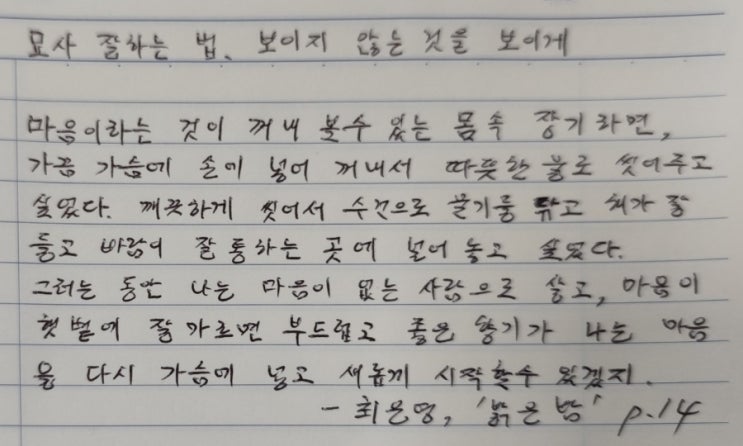 묘사 잘하는 법. 보이지 않는 것을 보이게
마음이라는 것이 꺼내 볼수 있는 몸속 장기라면,
가끔 가슴에 손에 넣어 꺼내서 따뜻한 물로 씻어주고
싶었다. 깨끗하게 씻어서 수건으로 물기를 닦고 해가 잘
들고 바람이 잘 통하는 곳에 널어 놓고 싶었다.
그러는 동안 나는 마음이 없는 사람으로 살고, 마음이
햇볕에 잘 마르면 부드럽고 좋은 향기가 나는 마음
을 다시 가슴에 넣고 새롭게 시작할수 있겠지.
- 최은영, '밝은 밤' p.14